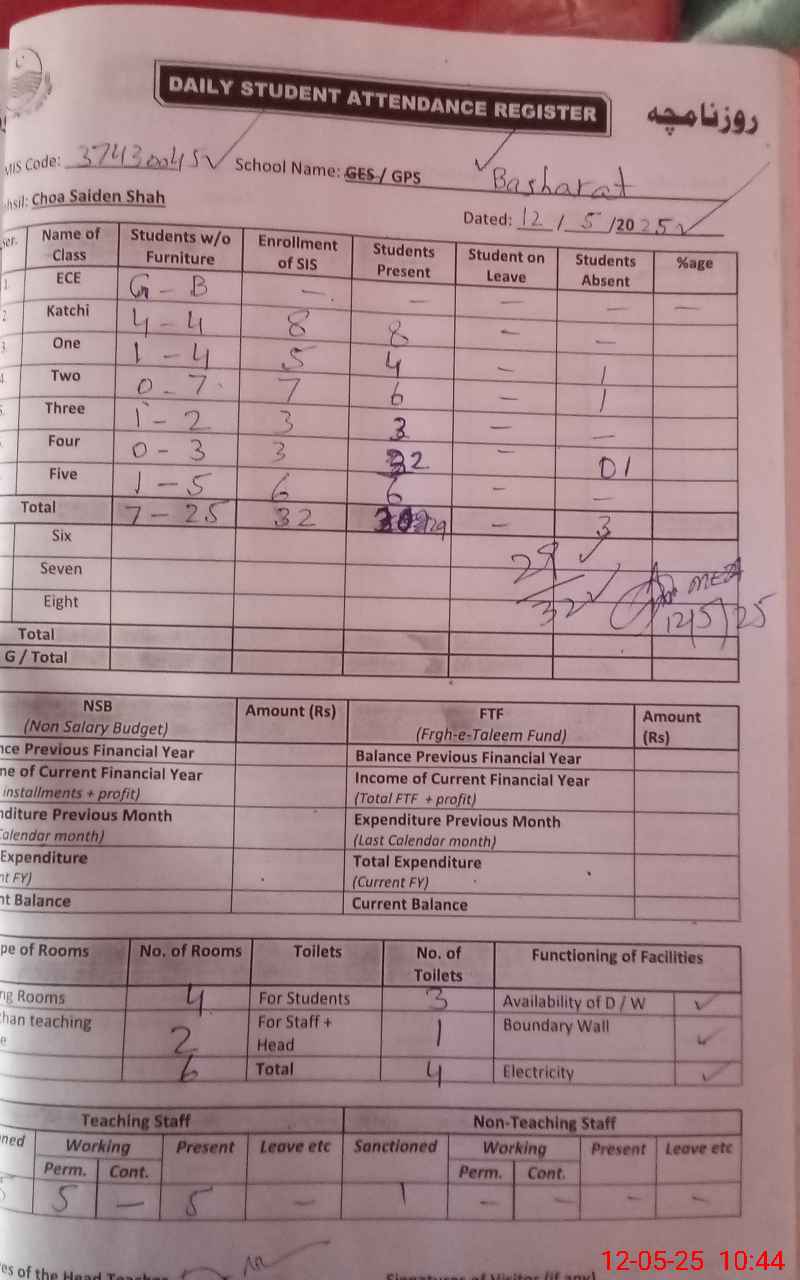 DAILY STUDENT ATTENDANCE REGISTER
روزنامچہ
MIS Code: 37430045 School Name: GES / GPS Basharat
hsil: Choa Saiden Shah Dated: 12 / 5 /2025
ser. Name of Class Students w/o Furniture Enrollment of SIS Students Present Student on Leave Students Absent %age
1. ECE G - B - - - - -
2 Katchi 4 - 4 8 8 - -
3. One 1 - 4 5 4 - 1
4. Two 0 - 7 7 6 - 1
5. Three 1 - 2 3 3 - -
Four 0 - 3 3 2 - 01
Five 1 - 5 6 6 - -
Total 7 - 25 32 29 - 3
Six
29
Seven
32 MEA
Eight
12/5/25
Total
G / Total
NSB (Non Salary Budget) Amount (Rs) FTF (Frgh-e-Taleem Fund) Amount (Rs)
nce Previous Financial Year Balance Previous Financial Year
me of Current Financial Year Income of Current Financial Year
installments + profit) (Total FTF + profit)
nditure Previous Month Expenditure Previous Month
Calendar month) (Last Calendar month)
Expenditure Total Expenditure
nt FY) (Current FY)
nt Balance Current Balance
pe of Rooms No. of Rooms Toilets No. of Toilets Functioning of Facilities
ng Rooms 4 For Students 3 Availability of D / W ✓
than teaching 2 For Staff + Head 1 Boundary Wall ✓
e
6 Total 4 Electricity ✓
Teaching Staff Non-Teaching Staff
ned Working Present Leave etc Sanctioned Working Present Leave etc
Perm. Cont. Perm. Cont.
5 5 - 5 - 1 - - - -
es of the Head Teacher Signatures of Visitor (if any)
12-05-25 10:44